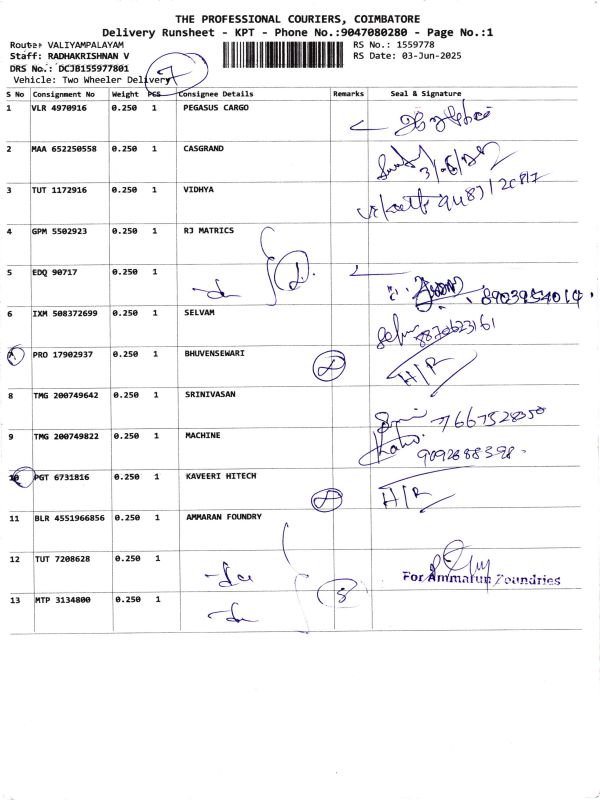 THE PROFESSIONAL COURIERS, COIMBATORE
Delivery Runsheet - KPT - Phone No.:9047080280 - Page No.:1
Route: VALIYAMPALAYAM RS No.: 1559778
Staff: RADHAKRISHNAN V RS Date: 03-Jun-2025
DRS No.: DCJB155977801 7
Vehicle: Two Wheeler Delivery
S No Consignment No Weight PCS Consignee Details Remarks Seal & Signature
1 VLR 4970916 0.250 1 PEGASUS CARGO
2 MAA 652250558 0.250 1 CASGRAND
3 TUT 1172916 0.250 1 VIDHYA
4 GPM 5502923 0.250 1 RJ MATRICS
5 EDQ 90717 0.250 1
8903954014
6 IXM 508372699 0.250 1 SELVAM
8870623161
7 PRO 17902937 0.250 1 BHUVENSEWARI H/R
8 TMG 200749642 0.250 1 SRINIVASAN
7667528350
9 TMG 200749822 0.250 1 MACHINE
9092688398
10 PGT 6731816 0.250 1 KAVEERI HITECH H/R
11 BLR 4551966856 0.250 1 AMMARAN FOUNDRY
12 TUT 7208628 0.250 1
For Ammarun Foundries
13 MTP 3134800 0.250 1